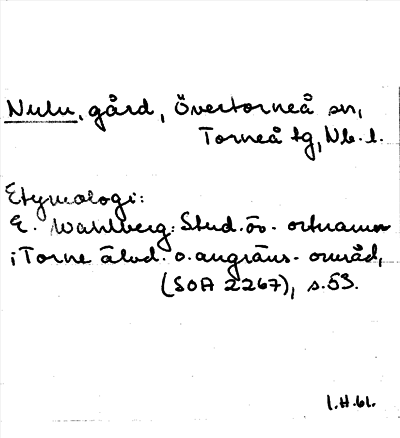 Nulu, gård, Övertorneå sn,
Torneå tg, Nb. l.
Etymologi:
E. Wahlberg: Stud. öv. ortnamn
i Torne älvd. o. angräns. områd,
(SOA 2267), s. 53.
I.H. 61.